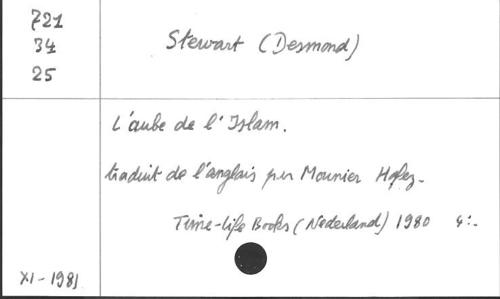 721
34
25
Stewart (Desmond)
L'aube de l'Islam.
traduit de l'anglais par Mounier Hafez.
Time-Life Books (Nederland) 1980 4:-
XI-1981